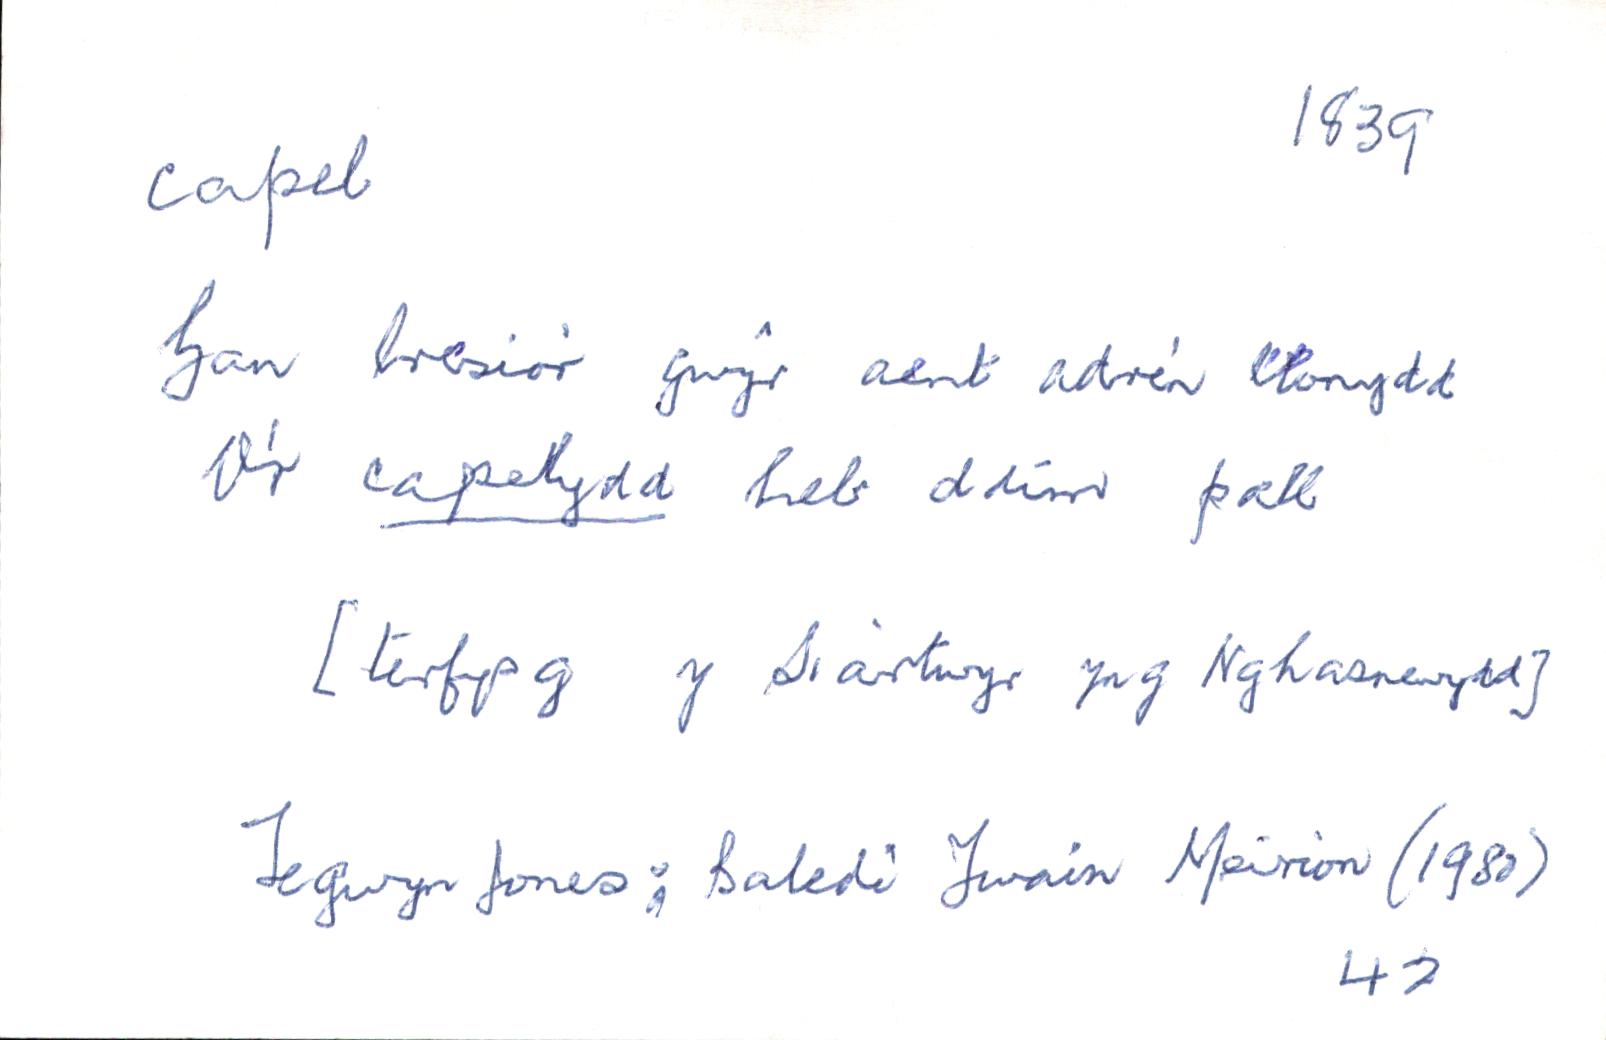 1839
capel
Gan bresio'r gwŷr aent adre'n llonydd
O'r capelydd heb ddim pall
[terfysg y Siartwyr yng Nghasnewydd]
Tegwyn Jones; Baledi Ywain Meirion (1980)
42